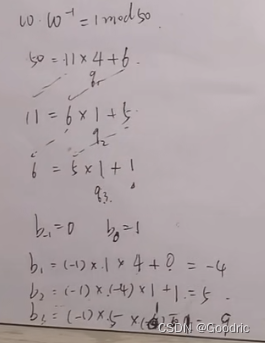 ω·ω⁻¹ = 1 mod 50
50 = 11 × 4 + 6.
q₁
11 = 6 × 1 + 5
q₂
6 = 5 × 1 + 1
q₃.
b₋₁ = 0 b₀ = 1
b₁ = (-1) × 1 × 4 + 0 = -4
b₂ = (-1) × (-4) × 1 + 1 = 5.
b₃ = (-1) × 5 × = 9
CSDN @Goodric